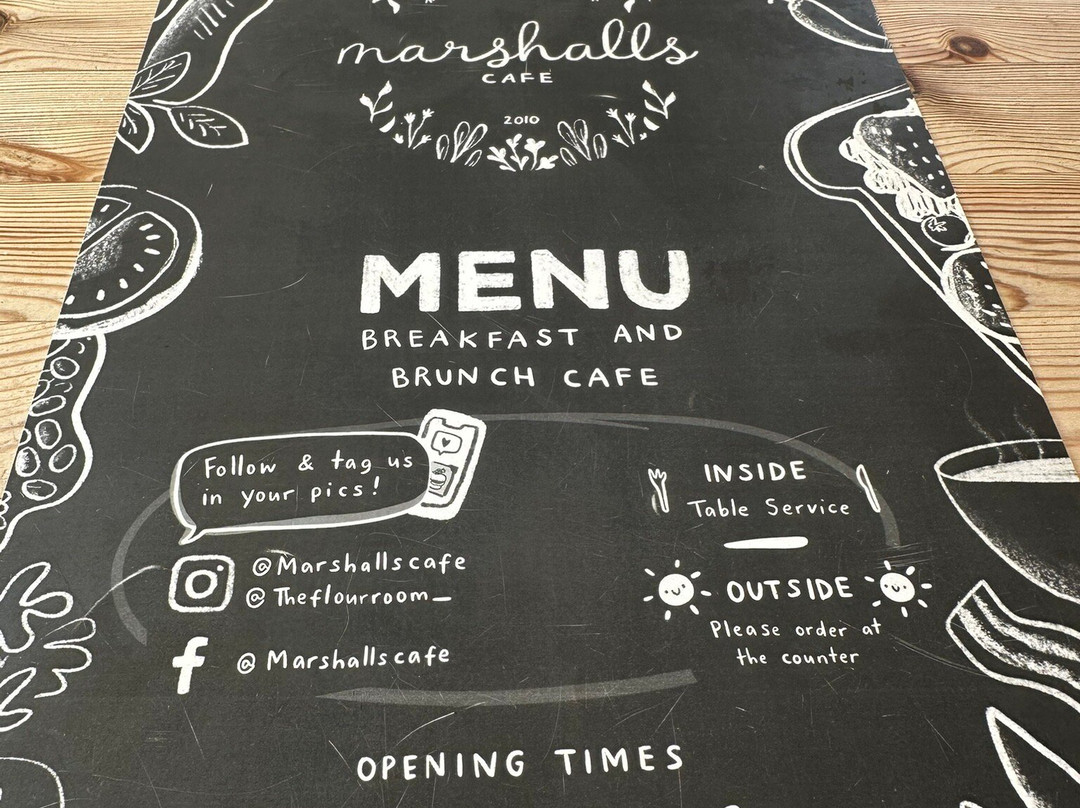 marshalls
CAFE
2010
MENU
BREAKFAST AND
BRUNCH CAFE
Follow & tag us
in your pics!
@Marshallscafe
@Theflourroom_
@Marshallscafe
INSIDE
Table Service
OUTSIDE
Please order at
the counter
OPENING TIMES